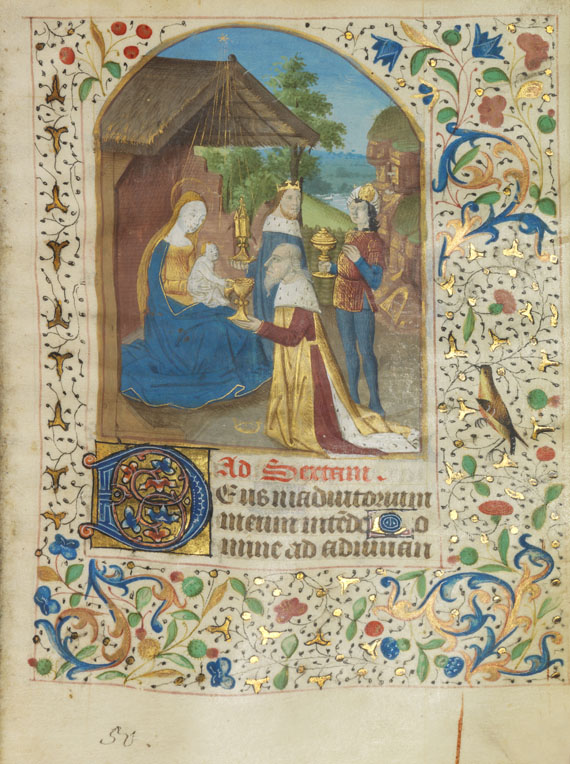 Ad Sextam.
Deus in adiutorium
meum intēde Do
mine ad adiuuan